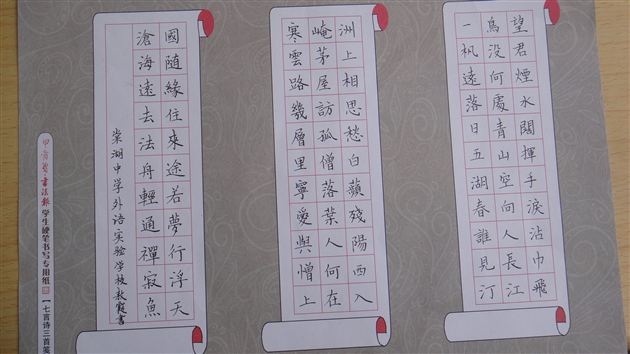 望君煙水闊揮手淚沾巾飛
鳥没何處青山空向人長江
一帆遠落日五湖春誰見汀
洲上相思愁白蘋殘陽西入
崦茅屋訪孤僧落葉人何在
寒雲路幾層里寧愛與憎上
國随緣住來途若夢行浮天
滄海遠去法舟輕通禪寂魚
棠湖中学外语实验学校書
書法報学生硬笔书写专用纸【七言诗三首笺